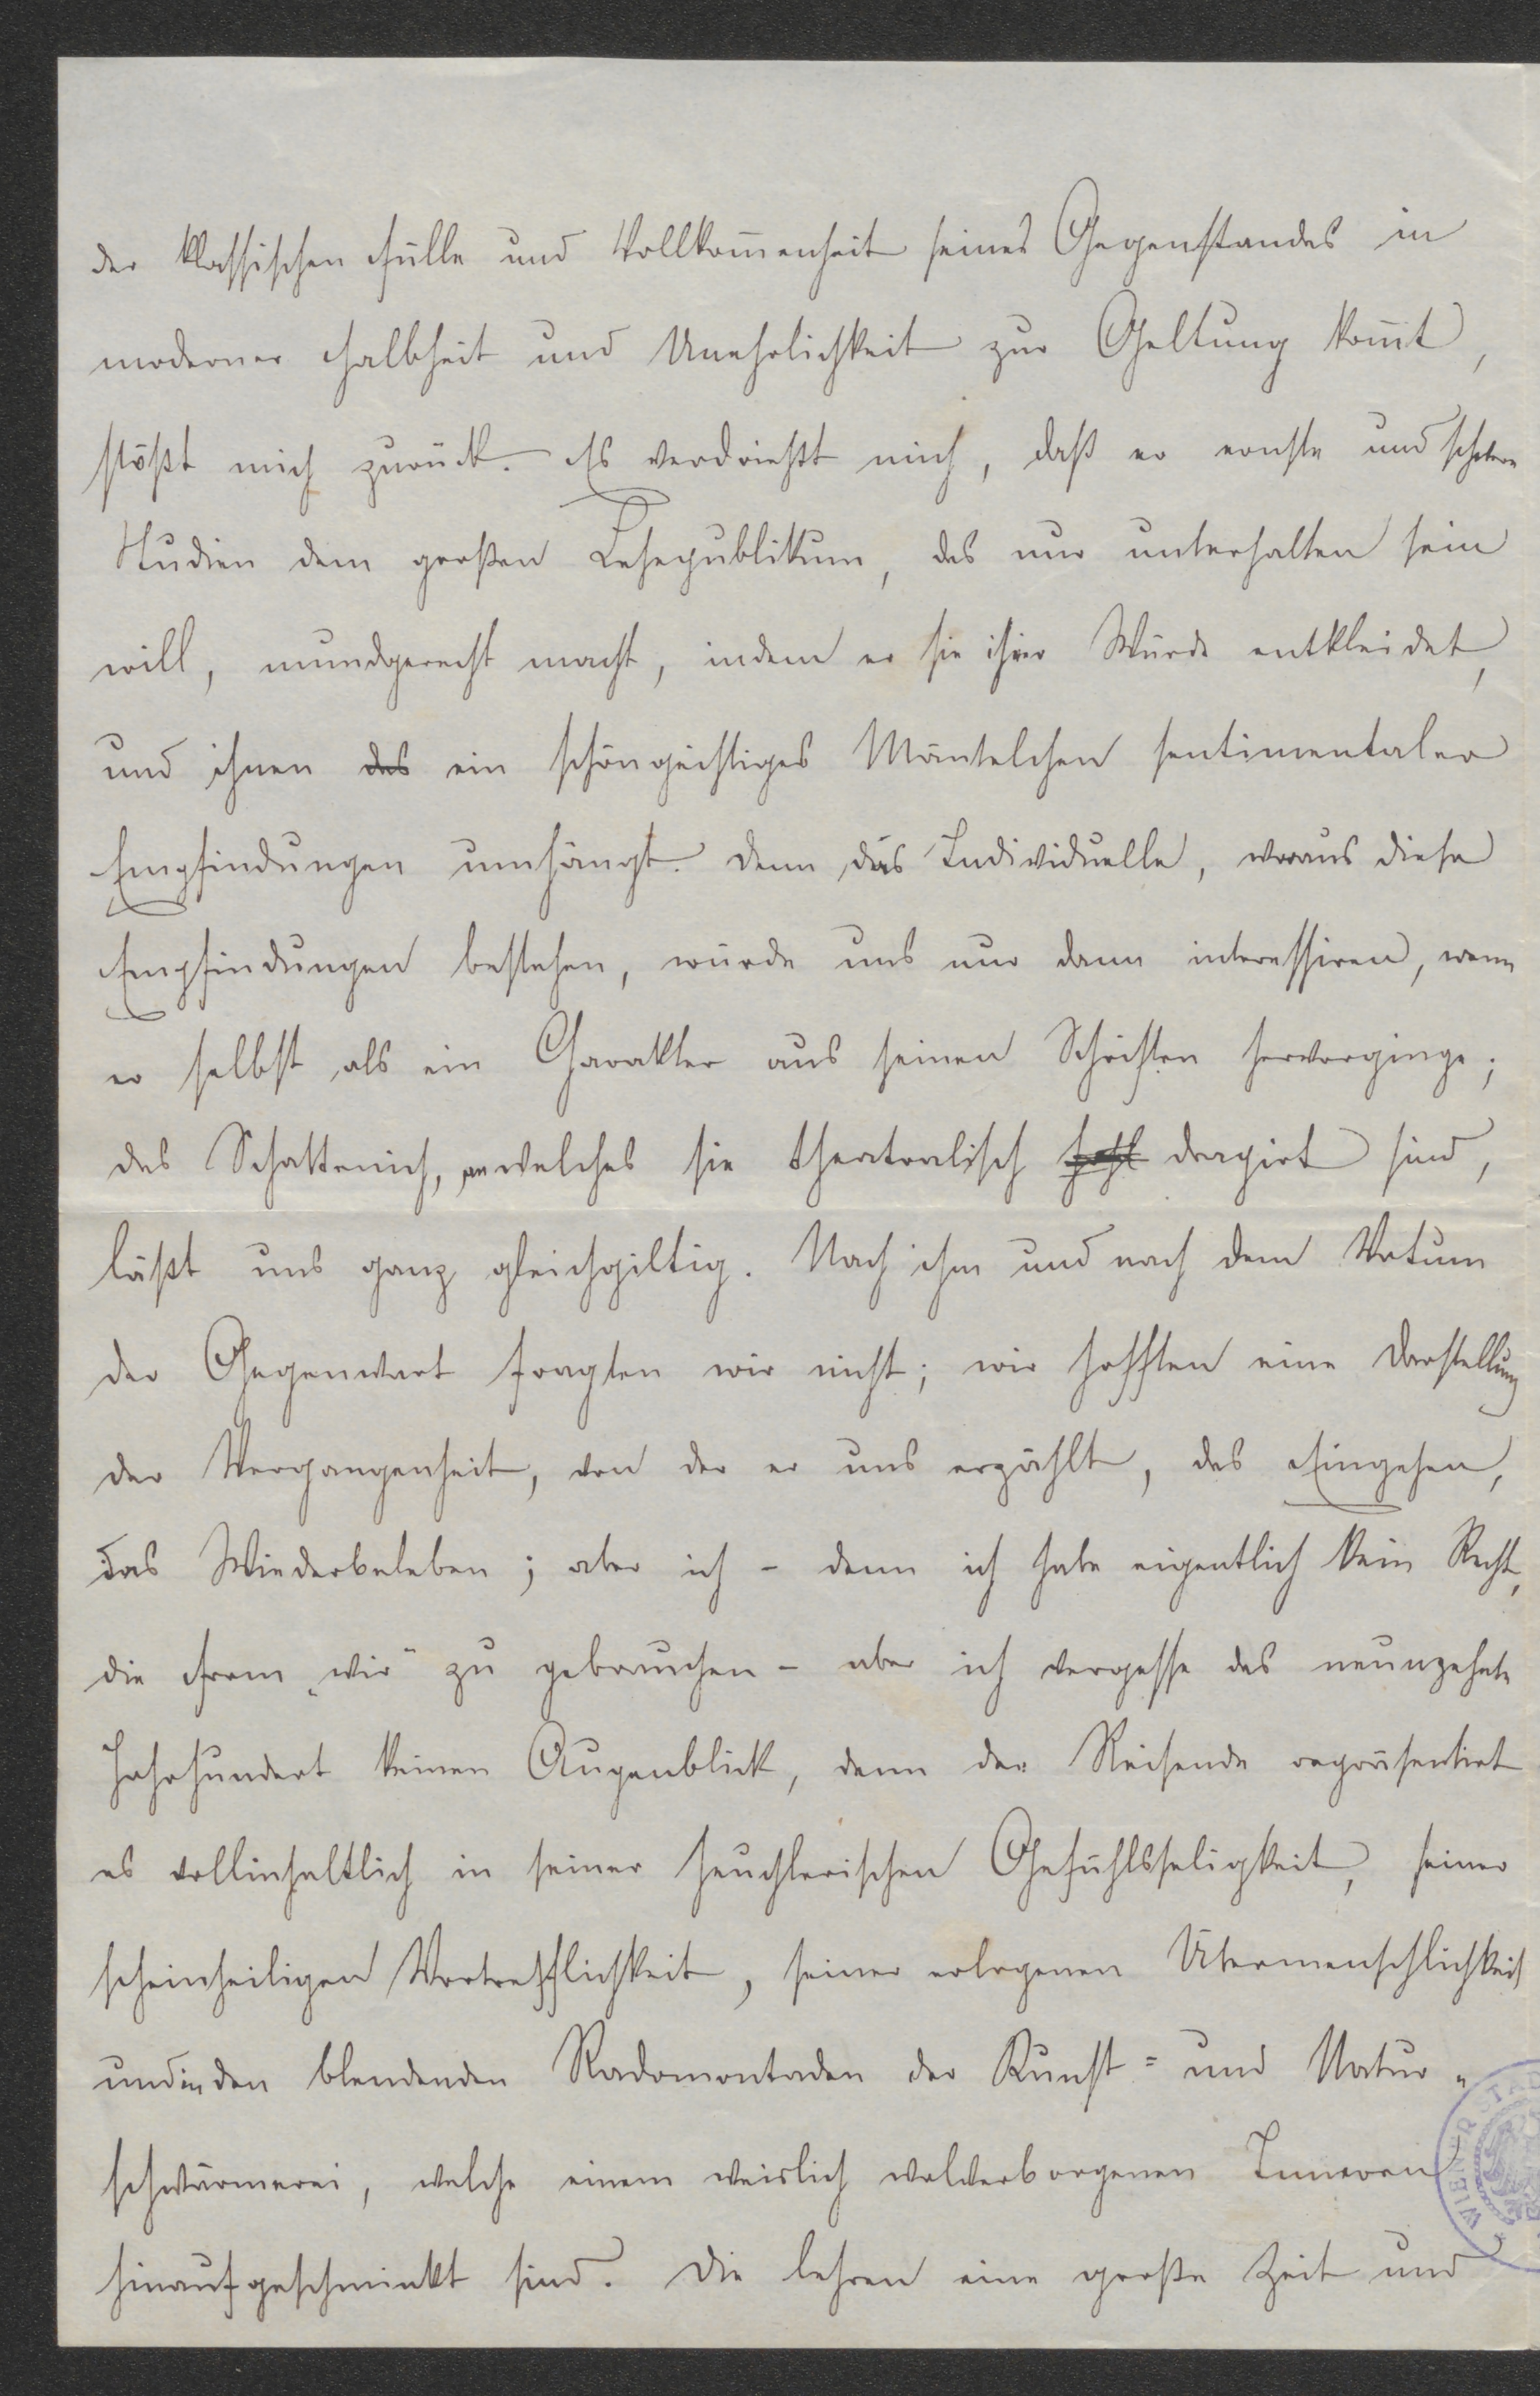 der klassischen Fülle und Vollkom̅enheit seines Gegenstandes in
moderner Halbheit und Unehrlichkeit zur Geltung kom̅t,
stößt mich zurück. Es verdrießt mich, daß er ernste und schwere
Studien dem großen Lesepublikum, das nur unterhalten sein
will, mundgerecht macht, indem er sie ihrer Würde entkleidet,
und ihnen das ein schöngeistiges Mäntelchen sentimentaler
Empfindungen umhängt. Denn das Individuelle, woraus diese
Empfindungen bestehen, würde uns nur dann interessiren, wenn
er selbst als ein Charakter aus seinen Schriften hervorginge;
das Schattenich, um welches sie theatralisch drapirt sind,
läßt uns ganz gleichgiltig. Nach ihm und nach dem Votum
der Gegenwart fragten wir nicht; wir hofften eine Darstellung
der Vergangenheit, von der er uns erzählt, das Eingehen,
das Wiederbeleben; aber ich – denn ich habe eigentlich kein Recht,
die Form „wir“ zu gebrauchen – aber ich vergesse das neunzehnte
Jahrhundert keinen Augenblick, denn der Reisende repräsentirt
es vollinhaltlich in seiner heuchlerischen Gefühlsseligkeit, seiner
scheinheiligen Vortrefflichkeit, seiner erlogenen Übermenschlichkeit
und in den blendenden Radomontaden der Kunst= und Natur„
schwärmerei, welche einem weislich wolverborgenen Inneren
hinaufgeschminkt sind. Die lehren eine große Zeit und
WIENER STAD